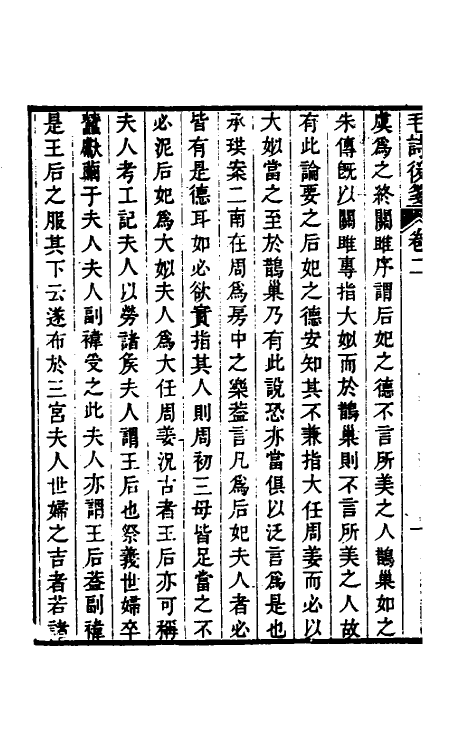 毛詩後箋 卷二 一
虞爲之終關雎序謂后妃之德不言所美之人鵲巢如之
朱傳旣以關雎專指大姒而於鵲巢則不言所美之人故
有此論要之后妃之德安知其不兼指大任周姜而必以
大姒當之至於鵲巢乃有此說恐亦當俱以泛言爲是也
承珙案二南在周爲房中之樂葢言凡爲后妃夫人者必
皆有是德耳如必欲實指其人則周初三母皆足當之不
必泥后妃爲大姒夫人爲大任周姜況古者王后亦可稱
夫人考工記夫人以勞諸矦夫人謂王后也祭義世婦卒
蠶獻繭于夫人夫人副褘受之此夫人亦謂王后葢副褘
是王后之服其下云遂布於三宮夫人世婦之吉者若諸